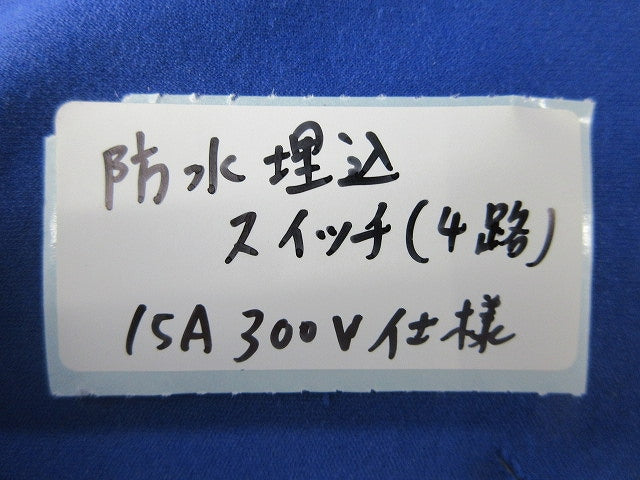 防水埋込
スイッチ(4路)
15A 300V仕様